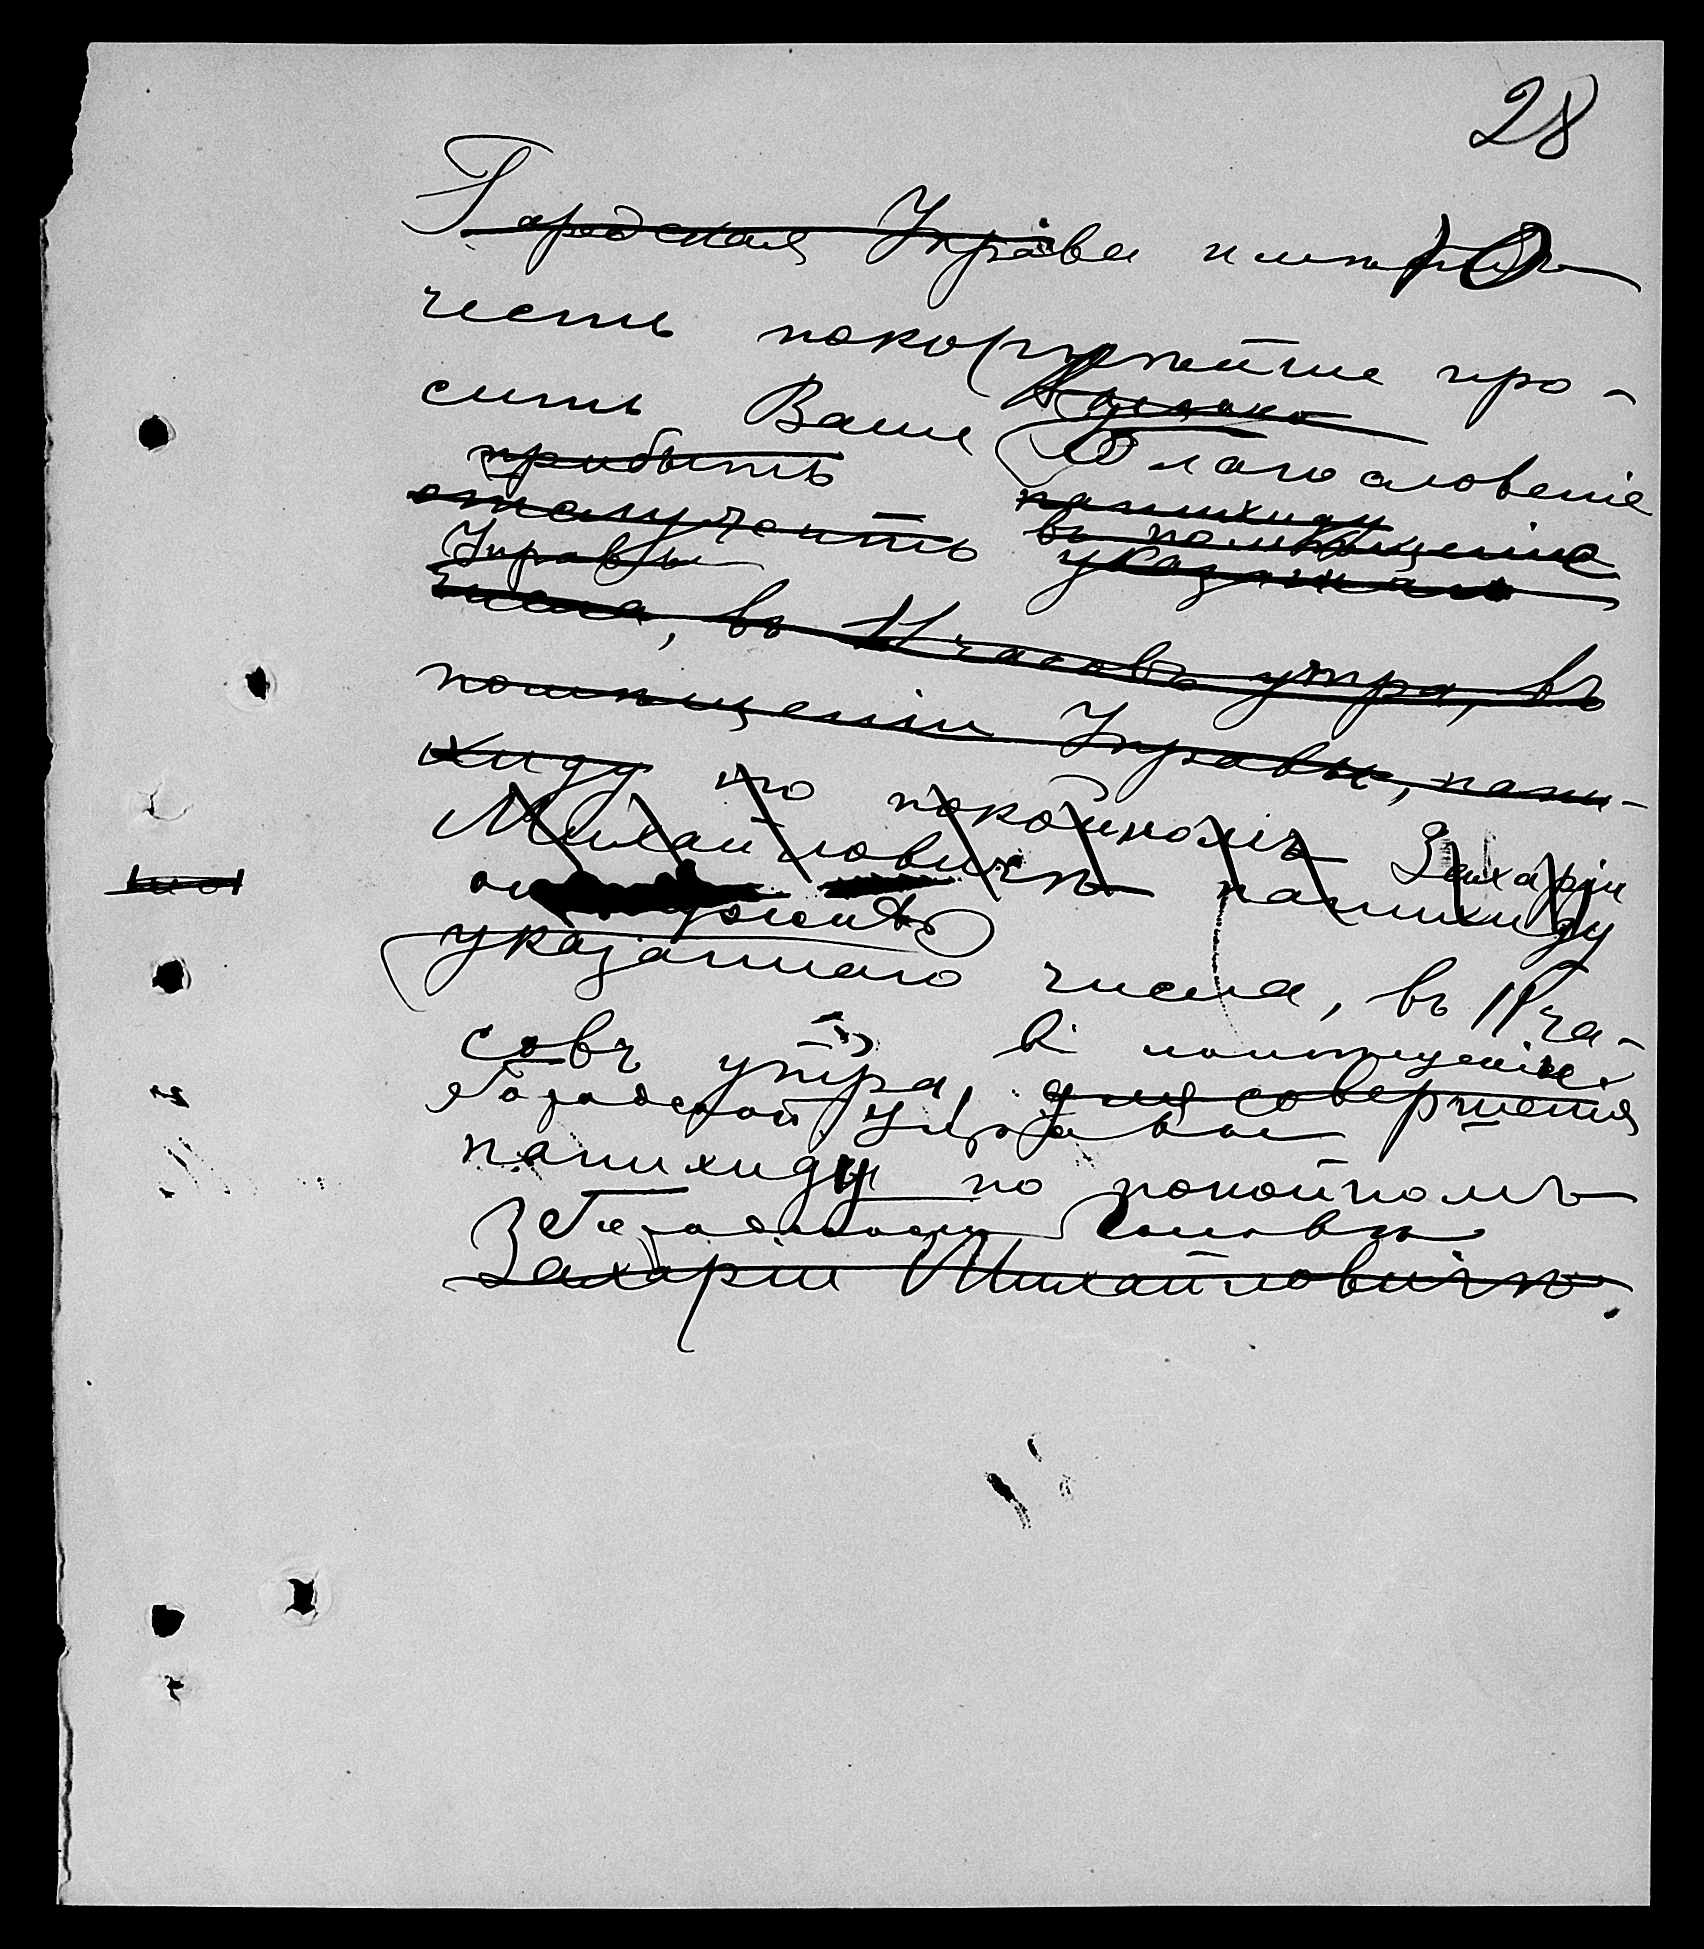 28
Городская Управа имѣю
честь покорнѣйше про-
сить Ваше Благословеніе
прибыть панихиду
отслужить въ помѣщеніе
Управы указаннаго
числа, въ 11 часовъ утра, въ
помѣщеніи Управы, пани-
хиду по покойномъ Захаріи
Михайловичѣ панихиду
указаннаго числа, въ 11 ча-
совъ утра, въ помѣщеніи
для совершенія
Городской Управы
панихиду по покойномъ
Городскомъ Головѣ
Захаріи Михайловичѣ.